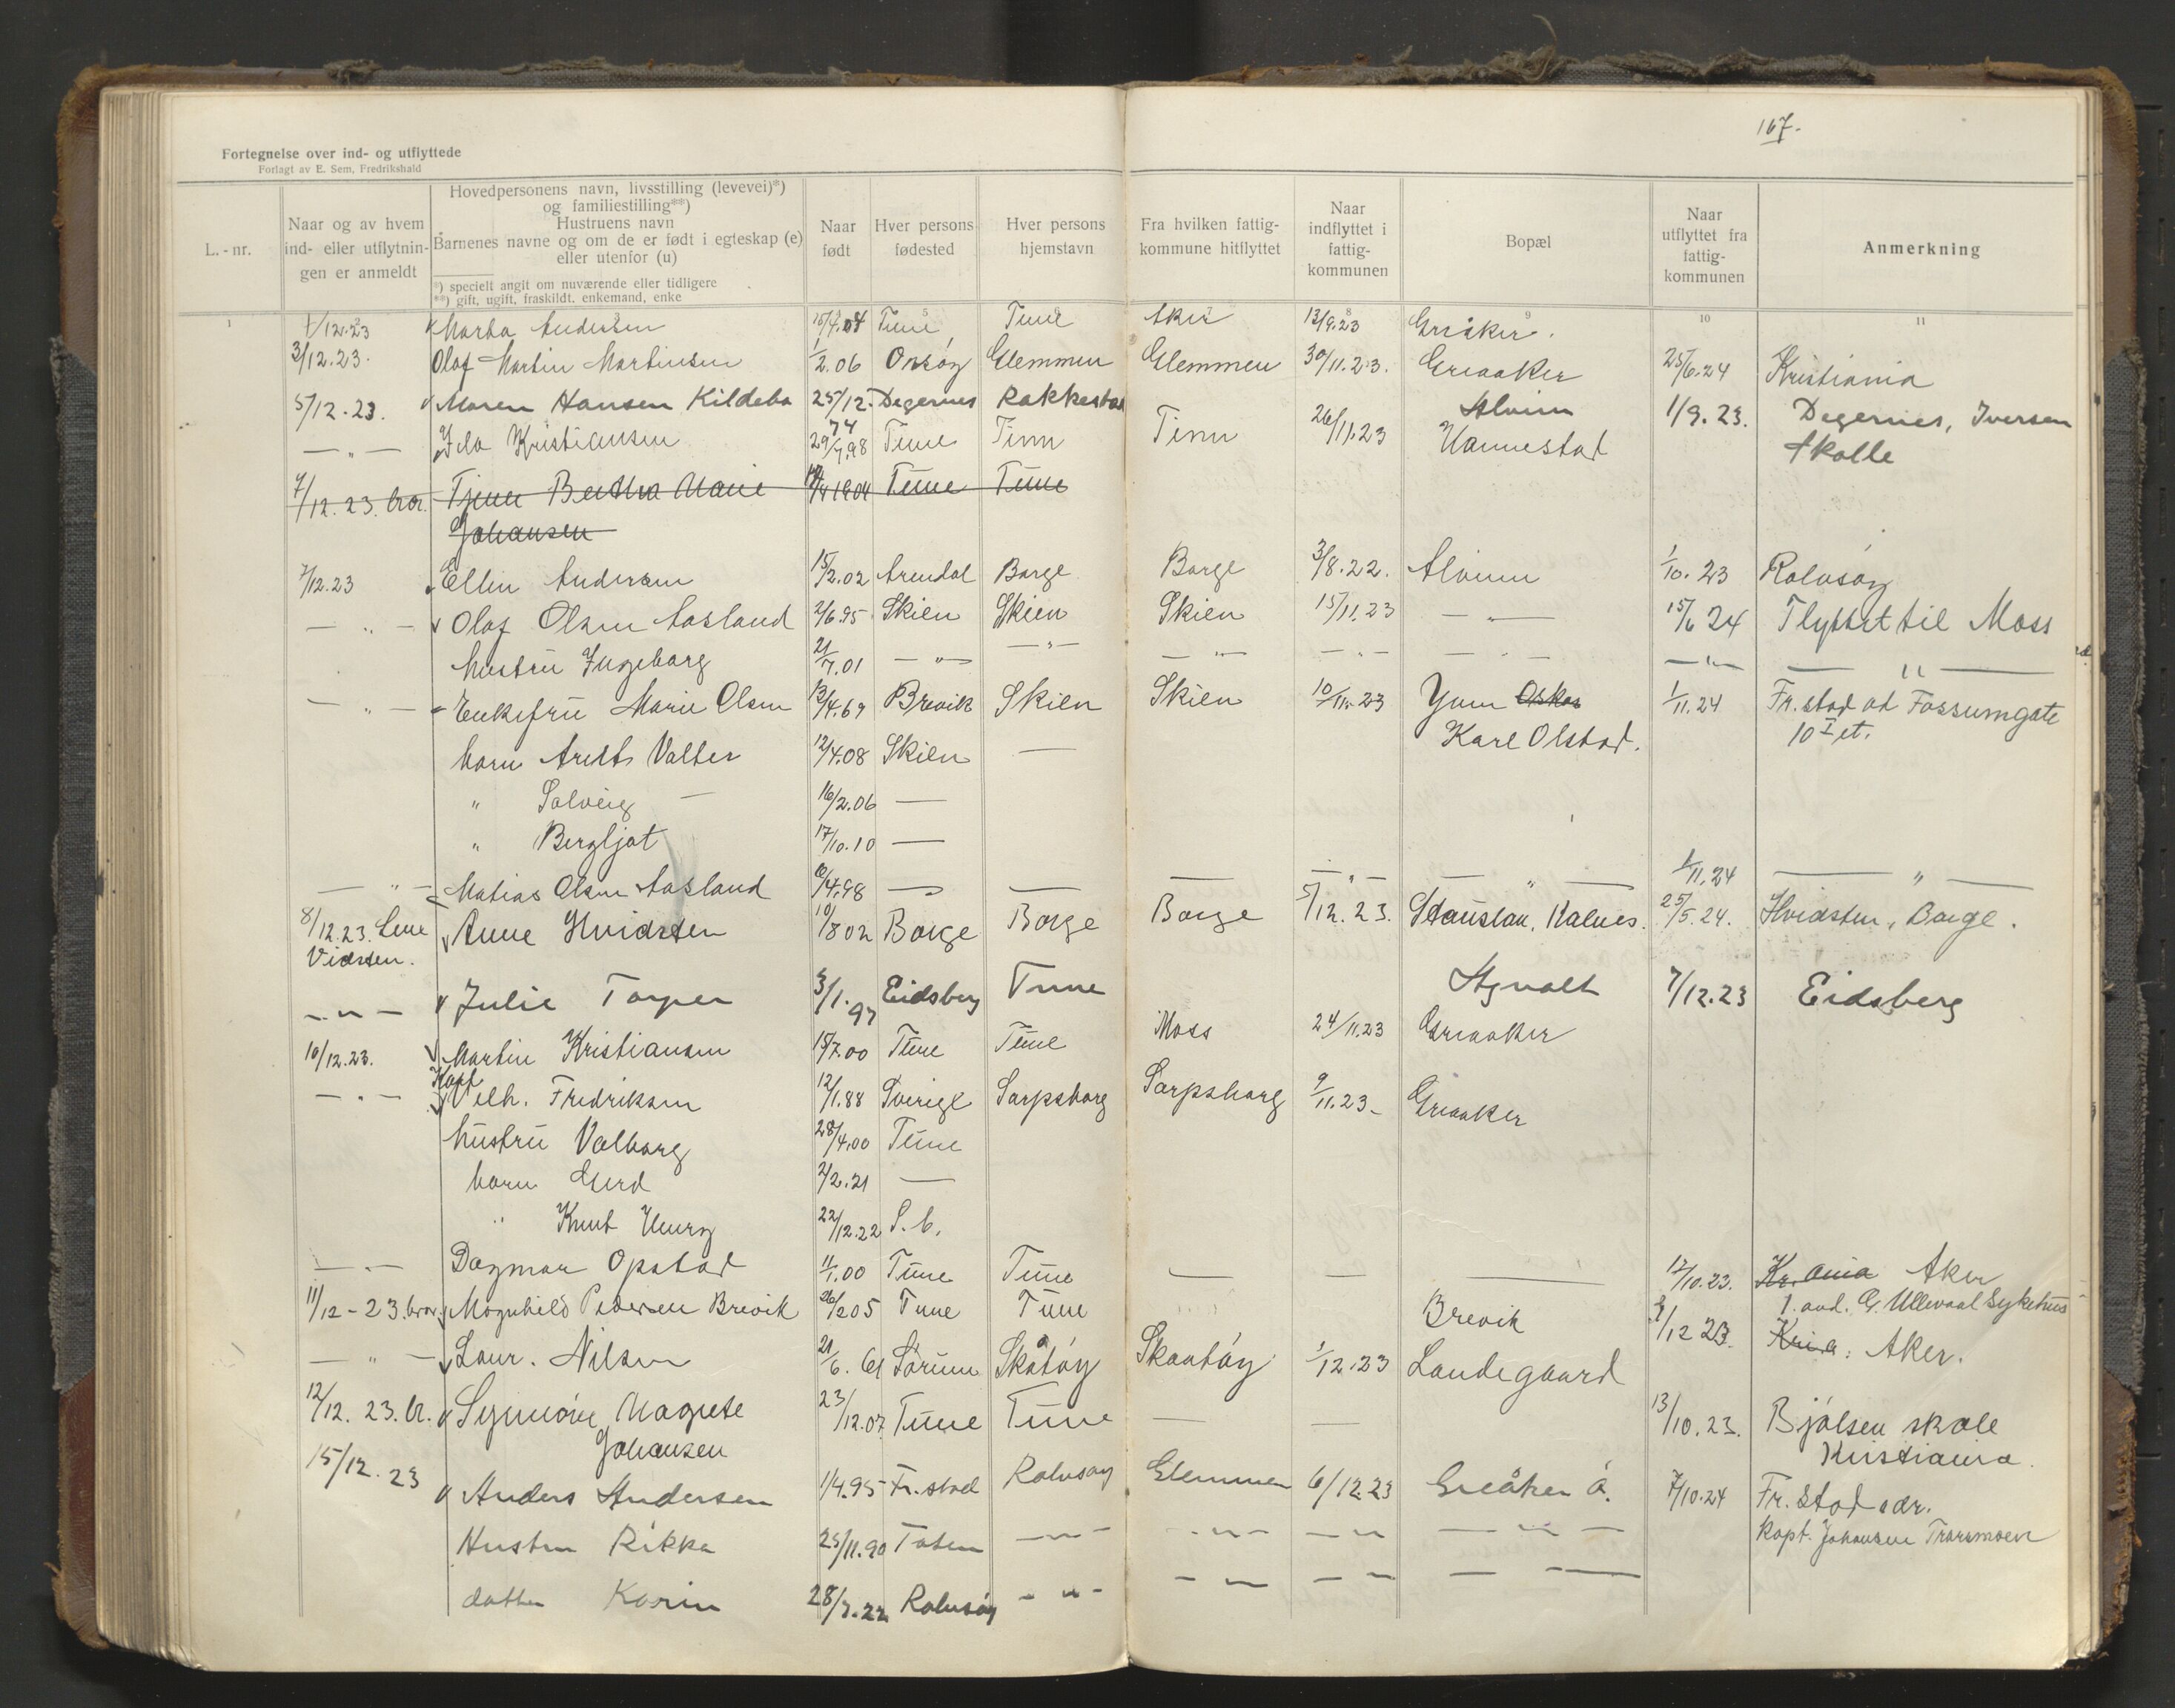 167.
Fortegnelse over ind- og utflyttede
Forlagt av E. Sem, Fredrikshald
L.-nr.
Naar og av hvem ind- eller utflytningen er anmeldt
Hovedpersonens navn, livsstilling (levevei)*) og familiestilling**)
Hustruens navn
Barnenes navne og om de er født i egteskap (e) eller utenfor (u)
*) specielt angit om nuværende eller tidligere
**) gift, ugift, fraskildt, enkemand, enke
Naar født
Hver persons fødested
Hver persons hjemstavn
Fra hvilken fattigkommune hitflyttet
Naar indflyttet i fattigkommunen
Bopæl
Naar utflyttet fra fattigkommunen
Anmerkning
1 5 8 9 10 11
1/12.23 Marta Andersen 15/7.04 Tune Tune Aker 13/9.23 Greåker.
3/12.23. Olaf Martin Martinsen 1/2.06 Onsöy Glemmen Glemmen 30/11.23. Greaaker 25/6.24 Kristiania
5/12.23. Maren Hansen Kildebo 25/12.74 Degernes Rakkestad Alvim 1/9.23. Degernes, Iversen Skolle
— " — Ida Kristiansen 29/7.98 Tune Tinn Tinn 26/11.23 Hannestad
7/12.23. bror. Tjener Bertha Marie 1904 Tune Tune
Johansen
7/12.23 Ellin Andersen 15/2.02 Arendal Borge Borge 3/8.22. Alvim 1/10.23 Rolvsöy
— " — Olaf Olsen Aasland 2/6.95 Skien Skien Skien 15/11.23 — " — 15/6 24 Flyttet til Moss
hustru Ingeborg 21/7.01 — " — — " — — " — — " — — " — — " — — " —
— " — Enkefru Marie Olsen 13/4.69 Brevik Skien Skien 10/11.23 Yven Oskar 1/11.24 Fr.stad ad Fossumgate
Karl Olstad. 10 I et.
barn Arelt Valter 12/4.08 Skien —
" Solveig — 16/2.06 —
" Bergljot 17/10.10 —
— " — Matias Olsen Aasland /4.98 — — — — " — — " — 1/11.24 — " —
8/12.23. Lene Anne Hvidsten 10/8 02 Borge Borge Borge 5/12.23. Stauslan, Kalnes. 25/5.24. Hvidsten, Borge.
Vidsten.
— " — Julie Torper 3/1.97 Eidsberg Tune Agnalt 7/12.23 Eidsberg
10/12.23. Martin Kristiansen 15/7.00 Tune Tune Moss 24/11.23 Greaaker
Kapt
— " — Vilh. Fredriksen 12/1.88 Sverige Sarpsborg Sarpsborg 9/11.23- Greaaker
hustru Valborg 28/4.00 Tune
barn Gerd 2/2.21 —
" Knut Henry 22/12.22 S.b.
— " — Dagmar Opstad 11/1.00 Tune Tune — — — 12/10.23. Kr.ania Aker
1. avd. G. Ullevaal Sykehus
11/12-23. bror. Magnhild Pedersen Brevik 26/2 05 Tune Tune Brevik /12 23. Kria: Aker.
— " — Laur. Nilsen 21/6.61 Sörum Skåtöy Skaatöy 1/12.23 Landegaard
12/12.23. br. Synnöve Magrete 23/12.07 Tune Tune — — 13/10.23. Bjölsen skole
Johansen Kristiania.
15/12.23 Anders Andersen 1/4.95 Fr.stad Rolvsøy Glemmen 6/12.23 Greåker Å. 7/10.24 Fr.Stad adr.
Kapt. Johansen Trarsmoen
Hustru Rikka 25/11.90 Toten — " — — " — — " — — " —
datter Karin 28/7.22 Rolvsøy — " — — — — — — —